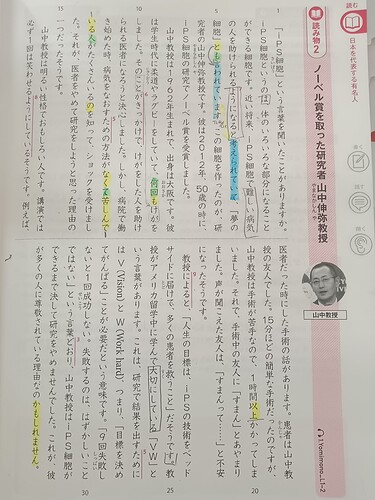 読む
日本を代表する有名人
読み物2
ノーベル賞を取った研究者 山中伸弥教授
やまなかしんや
「iPS細胞」という言葉を聞いたことがありますか。
iPS細胞というのは、体のいろいろな部分になること
ができる細胞です。近い将来、iPS細胞で難しい病気
の人を助けられるようになると考えられていて、「夢の
細胞」とも言われています。この細胞を作ったのが、研
究者の山中伸弥教授です。彼は2012年、50歳の時に、
iPS細胞の研究でノーベル賞を受賞しました。
山中教授は1962年生まれで、出身は大阪です。彼
は学生時代に柔道やラグビーをしていて、何回もけがを
しました。そのことがきっかけで、けがをした人を助け
られる医者になろうと決心しました。しかし、病院で働
き始めた時、病気をなおすための方法がなくて苦しんで
いる人がたくさんいるのを知って、ショックを受けまし
た。それが、医者をやめて研究をしようと思った理由の
一つだったそうです。
山中教授は明るい性格でおもしろい人です。講演では
必ず1回は笑わせるようにしているそうです。例えば、
5
10
15
山中教授
医者だった時にした手術の話があります。患者は山中教
授の友人でした。15分ほどの簡単な手術だったのですが、
山中教授は手術が苦手なので、1時間以上かかってしま
いました。それで、手術中の友人に「すまん」とあやまり
ました。声が聞こえた友人は、「すまんって……」と不安
になったそうです。
教授によると、「人生の目標は、iPSの技術をベッド
サイドに届けて、多くの患者を救うこと」だそうです。教
授がアメリカ留学中に学んで大切にしている「VW」と
いう言葉があります。これは、研究で結果を出すために
はV(Vision)とW(Work hard)、つまり、「目標を決め
てがんばる」ことが必要だという意味です。「9回失敗し
ないと1回成功しない。失敗するのは、はずかしいこと
ではない」という言葉どおり、山中教授はiPS細胞が
できるまで決して研究をやめませんでした。これが、彼
が多くの人に尊敬されている理由なのかもしれません。
20
25
30
書く
話す
聞く
TYomimono_L1-2